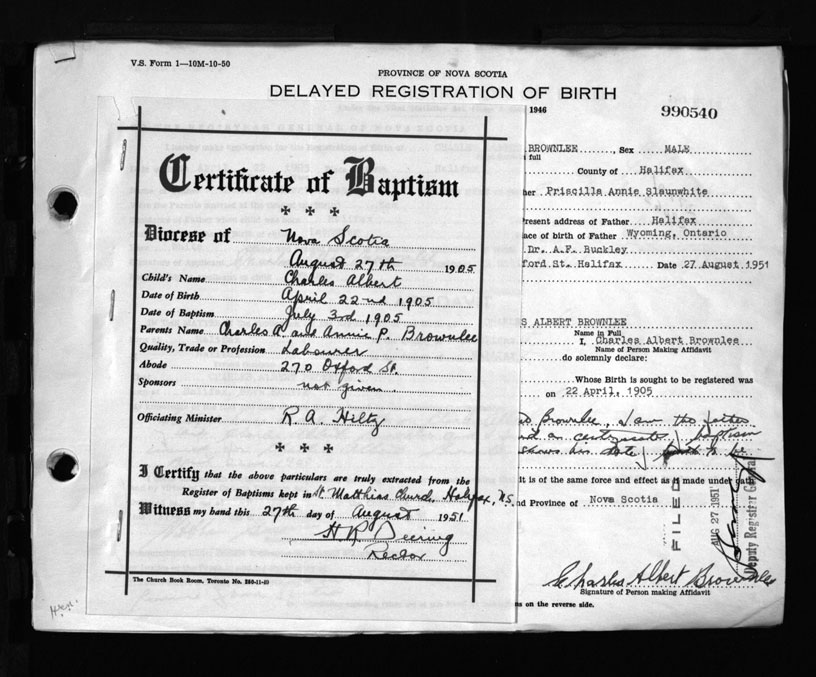 V.S. Form 1—10M-10-50
PROVINCE OF NOVA SCOTIA
DELAYED REGISTRATION OF BIRTH
1946
990540
Certificate of Baptism
Diocese of Nova Scotia
August 27th 1905
Child's Name Charles Albert
Date of Birth April 22nd 1905
Date of Baptism July 3rd 1905
Parents Name Charles A. and Annie P. Brownlee
Quality, Trade or Profession Labourer
Abode 270 Oxford St.
Sponsors not given
Officiating Minister R. A. Hiltz
I Certify that the above particulars are truly extracted from the
Register of Baptisms kept in St. Matthias Church, Halifax, N.S.
Witness my hand this 27th day of August 1951
H R Deering
Rector
The Church Book Room, Toronto No.
BROWNLEE, Sex MALE
full
County of Halifax
her Priscilla Annie Slaunwhite
Present address of Father Halifax
ace of birth of Father Wyoming, Ontario
Dr. A.F. Buckley
ford St. Halifax Date 27 August 1951
S ALBERT BROWNLEE
Name in Full
I, Charles Albert Brownlee
Name of Person Making Affidavit
do solemnly declare:
Whose Birth is sought to be registered was
on 22 April, 1905
Brownlee, I am the father
and on certificate of baptism
shows his date of birth to be
It is of the same force and effect as if made under oath
nd Province of Nova Scotia
FILED
AUG 27 1951
Deputy Registrar General
Charles Albert Brownlee
Signature of Person making Affidavit
s on the reverse side.